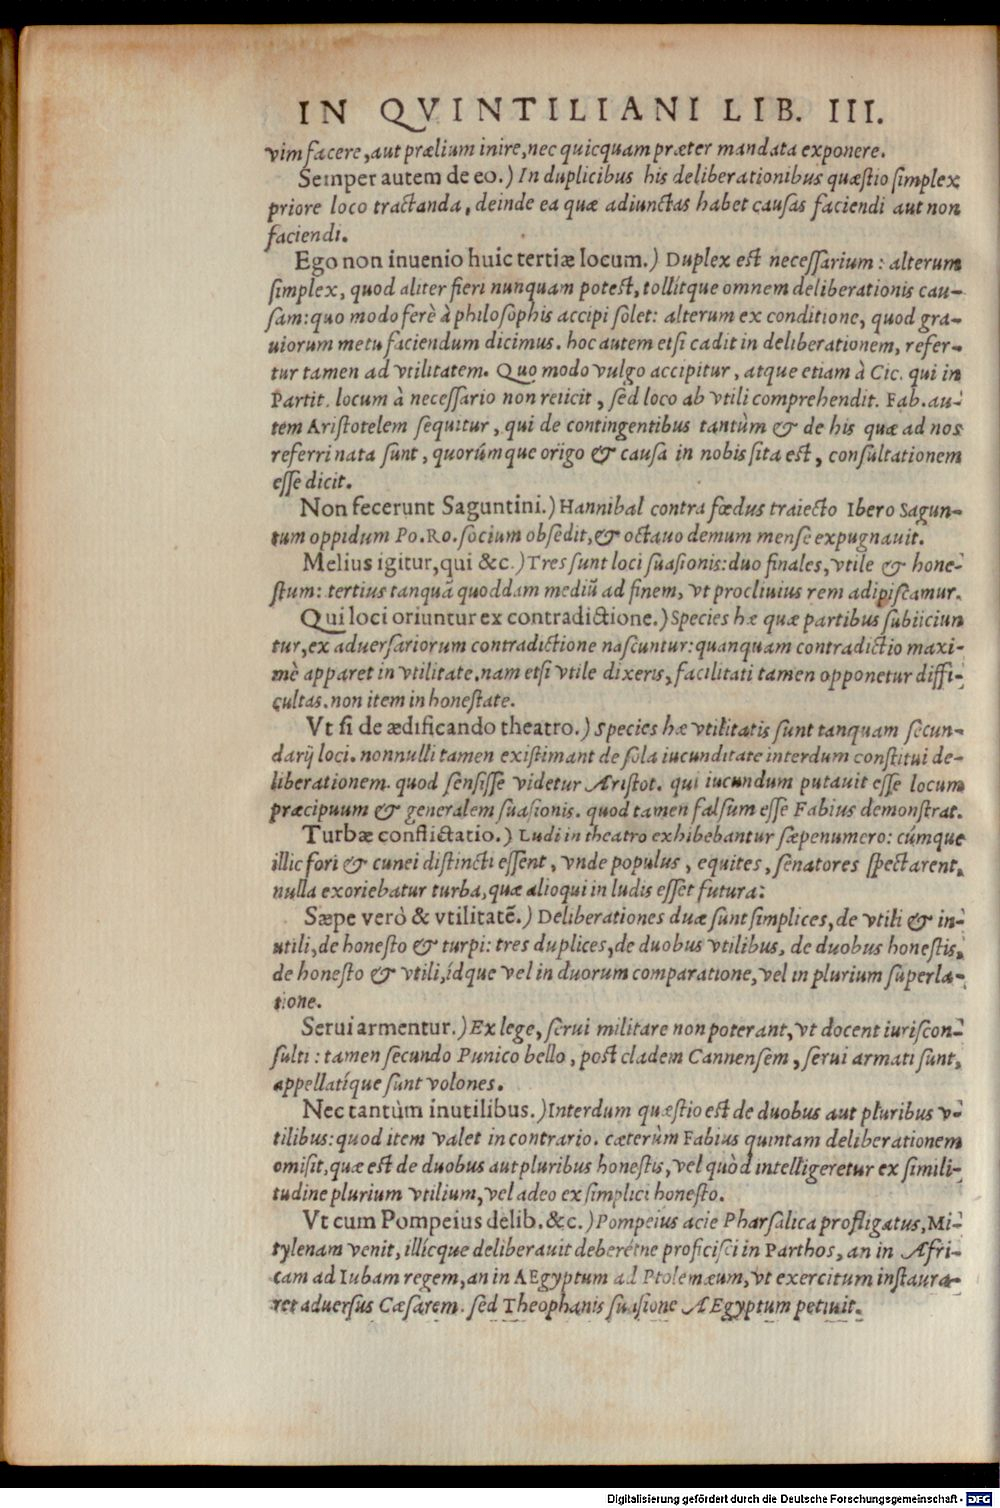 IN QVINTILIANI LIB. III.
vim facere, aut prælium inire, nec quicquam præter mandata exponere.
Semper autem de eo.) In duplicibus his deliberationibus quæstio simplex
priore loco tractanda, deinde ea quæ adiunctas habet causas faciendi aut non
faciendi.
Ego non inuenio huic tertiæ locum.) Duplex est necessarium: alterum
simplex, quod aliter fieri nunquam potest, tollítque omnem deliberationis cau-
sam: quo modo ferè à philosophis accipi solet: alterum ex conditione, quod gra-
uiorum metu faciendum dicimus. hoc autem etsi cadit in deliberationem, refer-
tur tamen ad vtilitatem. Quo modo vulgo accipitur, atque etiam à Cic. qui in
Partit. locum à necessario non reiicit, sed loco ab vtili comprehendit. Fab. au-
tem Aristotelem sequitur, qui de contingentibus tantùm & de his quæ ad nos
referri nata sunt, quorúmque origo & causa in nobis sita est, consultationem
esse dicit.
Non fecerunt Saguntini.) Hannibal contra fœdus traiecto Ibero Sagun-
tum oppidum Po. Ro. socium obsedit, & octauo demum mense expugnauit.
Melius igitur, qui &c.) Tres sunt loci suasionis: duo finales, vtile & hone-
stum: tertius tanquã quoddam mediũ ad finem, vt procliuius rem adipiscamur.
Qui loci oriuntur ex contradictione.) Species hæ quæ partibus subiiciun
tur, ex aduersariorum contradictione nascuntur: quanquam contradictio maxi-
mè apparet in vtilitate. nam etsi vtile dixeris, facilitati tamen opponetur diffi-
cultas. non item in honestate.
Vt si de ædificando theatro.) Species hæ vtilitatis sunt tanquam secun-
darij loci. nonnulli tamen existimant de sola iucunditate interdum constitui de-
liberationem. quod sensisse videtur Aristot. qui iucundum putauit esse locum
præcipuum & generalem suasionis. quod tamen falsum esse Fabius demonstrat.
Turbæ conflictatio.) Ludi in theatro exhibebantur sæpenumero: cúmque
illic fori & cunei distincti essent, vnde populus, equites, senatores spectarent,
nulla exoriebatur turba, quæ alioqui in ludis esset futura:
Sæpe verò & vtilitatẽ.) Deliberationes duæ sunt simplices, de vtili & in-
utili, de honesto & turpi: tres duplices, de duobus vtilibus, de duobus honestis,
de honesto & vtili, ídque vel in duorum comparatione, vel in plurium superla-
tione.
Serui armentur.) Ex lege, serui militare non poterant, vt docent iuriscon-
sulti: tamen secundo Punico bello, post cladem Cannensem, serui armati sunt,
appellatíque sunt volones.
Nec tantùm inutilibus.) Interdum quæstio est de duobus aut pluribus v-
tilibus: quod item valet in contrario. cæterùm Fabius quintam deliberationem
omisit, quæ est de duobus aut pluribus honestis, vel quòd intelligeretur ex simili-
tudine plurium vtilium, vel adeo ex simplici honesto.
Vt cum Pompeius delib. &c.) Pompeius acie Pharsalica profligatus, Mi-
tylenam venit, illícque deliberauit deberétne proficisci in Parthos, an in Afri-
cam ad Iubam regem, an in AEgyptum ad Ptolemæum, vt exercitum instaura-
ret aduersus Cæsarem. sed Theophanis suasione AEgyptum petiuit.
Digitalisierung gefördert durch die Deutsche Forschungsgemeinschaft - DFG